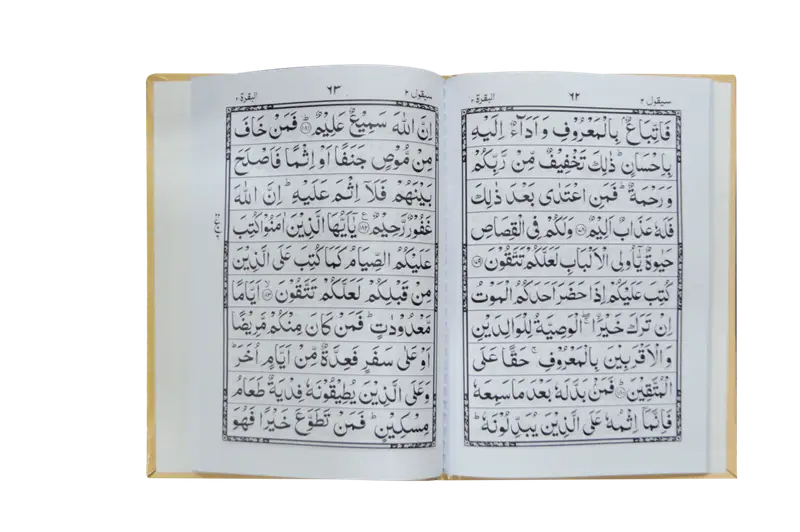 سیقول ۲ ۶۲ البقرة ۲
فَاتِّبَاعٌۢ بِالْمَعْرُوْفِ وَاَدَآءٌ اِلَیْهِ
بِاِحْسَانٍ ؕ ذٰلِكَ تَخْفِیْفٌ مِّنْ رَّبِّكُمْ
وَرَحْمَةٌ ؕ فَمَنِ اعْتَدٰی بَعْدَ ذٰلِكَ
فَلَهٗ عَذَابٌ اَلِیْمٌ ۝۱۷۸ وَلَكُمْ فِی الْقِصَاصِ
حَیٰوةٌ یّٰۤاُولِی الْاَلْبَابِ لَعَلَّكُمْ تَتَّقُوْنَ ۝۱۷۹
كُتِبَ عَلَیْكُمْ اِذَا حَضَرَ اَحَدَكُمُ الْمَوْتُ
اِنْ تَرَكَ خَیْرَا ۖۚ اۨلْوَصِیَّةُ لِلْوَالِدَیْنِ
وَالْاَقْرَبِیْنَ بِالْمَعْرُوْفِ ۚ حَقًّا عَلَی
الْمُتَّقِیْنَ ۝۱۸۰ فَمَنْۢ بَدَّلَهٗ بَعْدَ مَا سَمِعَهٗ
فَاِنَّمَاۤ اِثْمُهٗ عَلَی الَّذِیْنَ یُبَدِّلُوْنَهٗ ؕ
سیقول ۲ ۶۳ البقرة ۲
اِنَّ اللّٰهَ سَمِیْعٌ عَلِیْمٌ ۝۱۸۱ فَمَنْ خَافَ
مِنْ مُّوْصٍ جَنَفًا اَوْ اِثْمًا فَاَصْلَحَ
بَیْنَهُمْ فَلَاۤ اِثْمَ عَلَیْهِ ؕ اِنَّ اللّٰهَ
غَفُوْرٌ رَّحِیْمٌ ۝۱۸۲ یٰۤاَیُّهَا الَّذِیْنَ اٰمَنُوْا كُتِبَ
عَلَیْكُمُ الصِّیَامُ كَمَا كُتِبَ عَلَی الَّذِیْنَ
مِنْ قَبْلِكُمْ لَعَلَّكُمْ تَتَّقُوْنَ ۝۱۸۳ اَیَّامًا
مَّعْدُوْدٰتٍ ؕ فَمَنْ كَانَ مِنْكُمْ مَّرِیْضًا
اَوْ عَلٰی سَفَرٍ فَعِدَّةٌ مِّنْ اَیَّامٍ اُخَرَ ؕ
وَعَلَی الَّذِیْنَ یُطِیْقُوْنَهٗ فِدْیَةٌ طَعَامُ
مِسْكِیْنٍ ؕ فَمَنْ تَطَوَّعَ خَیْرًا فَهُوَ